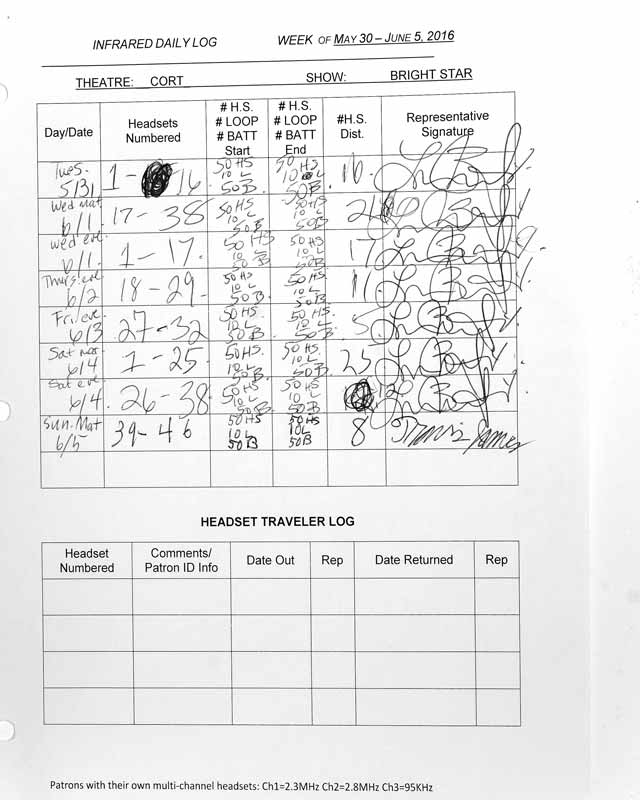 INFRARED DAILY LOG WEEK OF MAY 30 – JUNE 5, 2016
THEATRE: CORT SHOW: BRIGHT STAR
Day/Date Headsets Numbered # H.S. # LOOP # BATT Start # H.S. # LOOP # BATT End #H.S. Dist. Representative Signature
Tues. 5/31 1 - 16 50 HS 10 L 50 B. 50 HS 10 L 50 B. 16
Wed mat 6/1 17 - 38 50 HS 10 L 50 B 50 HS 10 L 50 B
Wed eve 6/1 1 - 17. 50 HS 10 L 50 B 50 HS 10 L 50 B 17
Thurs. eve 6/2 18 - 29. 50 HS 10 L 50 B. 50 HS 10 L 50 B 11
Fri. eve 6/3 27 - 32 50 HS. 10 L 50 B. 50 HS. 10 L 50 B. 5
Sat 6/4 1 - 25 50 HS. 10 L 50 B. 50 HS. 10 L 50 B 25
Sat eve 6/4 26 - 38 50 HS 10 L 50 B 50 HS 10 L 50 B
Sun. Mat 6/5 39 - 46 50 HS 10 L 50 B 50 HS 10 L 50 B 8 Travis James
HEADSET TRAVELER LOG
Headset Numbered Comments/ Patron ID Info Date Out Rep Date Returned Rep
Patrons with their own multi-channel headsets: Ch1=2.3MHz Ch2=2.8MHz Ch3=95KHz